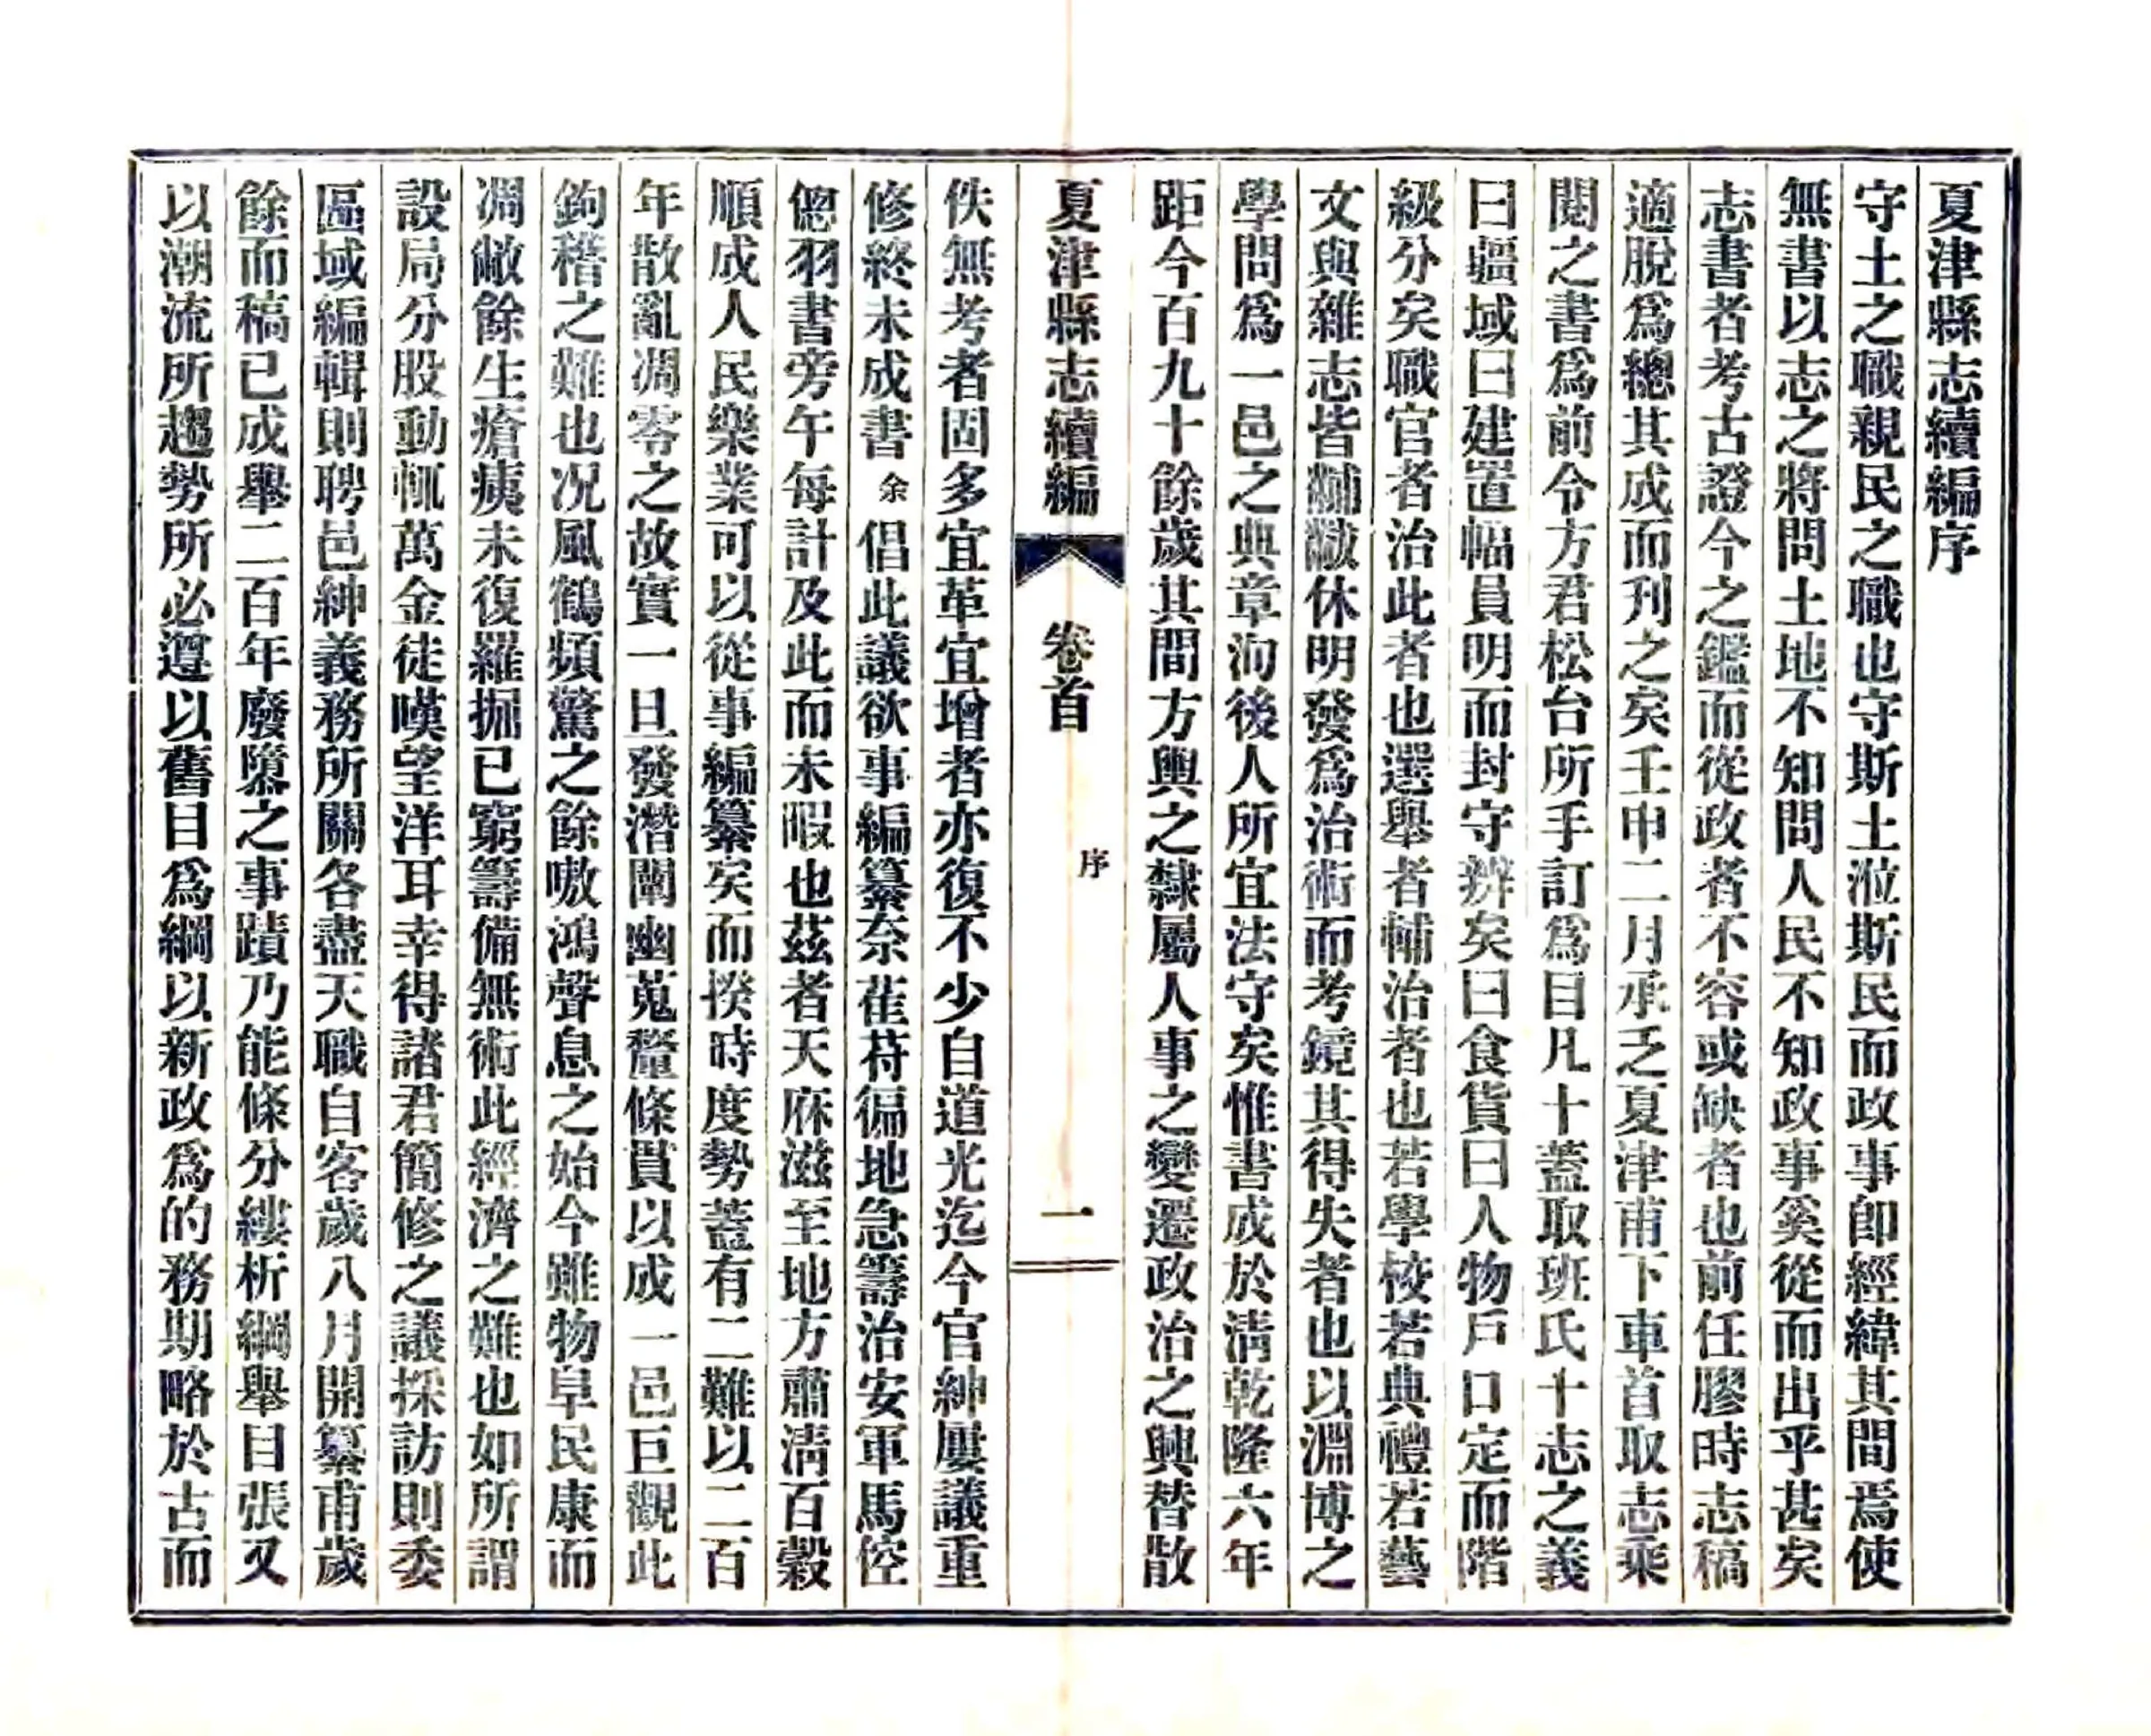 夏津縣志續編序
守土之職親民之職也守斯土涖斯民而政事卽經緯其間焉使
無書以志之將問土地不知問人民不知政事奚從而出乎甚矣
志書者考古證今之鑑而從政者不容或缺者也前任膠時志稿
適脫爲總其成而刋之矣壬申二月承乏夏津甫下車首取志乘
閱之書爲前令方君松台所手訂爲目凡十蓋取班氏十志之義
曰疆域曰建置幅員明而封守辨矣曰食貨曰人物戶口定而階
級分矣職官者治此者也選舉者輔治者也若學校若典禮若藝
文與雜志皆黼黻休明發爲治術而考鏡其得失者也以淵博之
學問爲一邑之典章洵後人所宜法守矣惟書成於淸乾隆六年
距今百九十餘歲其間方輿之隸屬人事之變遷政治之興替散
夏津縣志續編
卷首
序
一
佚無考者固多宜革宜增者亦復不少自道光迄今官紳屢議重
修終未成書余倡此議欲事編纂奈萑苻徧地急籌治安軍馬倥
傯羽書旁午每計及此而未暇也茲者天庥滋至地方肅淸百穀
順成人民樂業可以從事編纂矣而揆時度勢蓋有二難以二百
年散亂凋零之故實一旦發潛闡幽蒐釐條貫以成一邑巨觀此
鉤稽之難也况風鶴頻驚之餘嗷鴻聲息之始今雖物阜民康而
凋敝餘生瘡痍未復羅掘已窮籌備無術此經濟之難也如所謂
設局分股動輒萬金徒嘆望洋耳幸得諸君簡修之議採訪則委
區域編輯則聘邑紳義務所關各盡天職自客歲八月開纂甫歲
餘而稿已成舉二百年廢墮之事蹟乃能條分縷析綱舉目張又
以潮流所趨勢所必遵以舊目爲綱以新政爲的務期略於古而